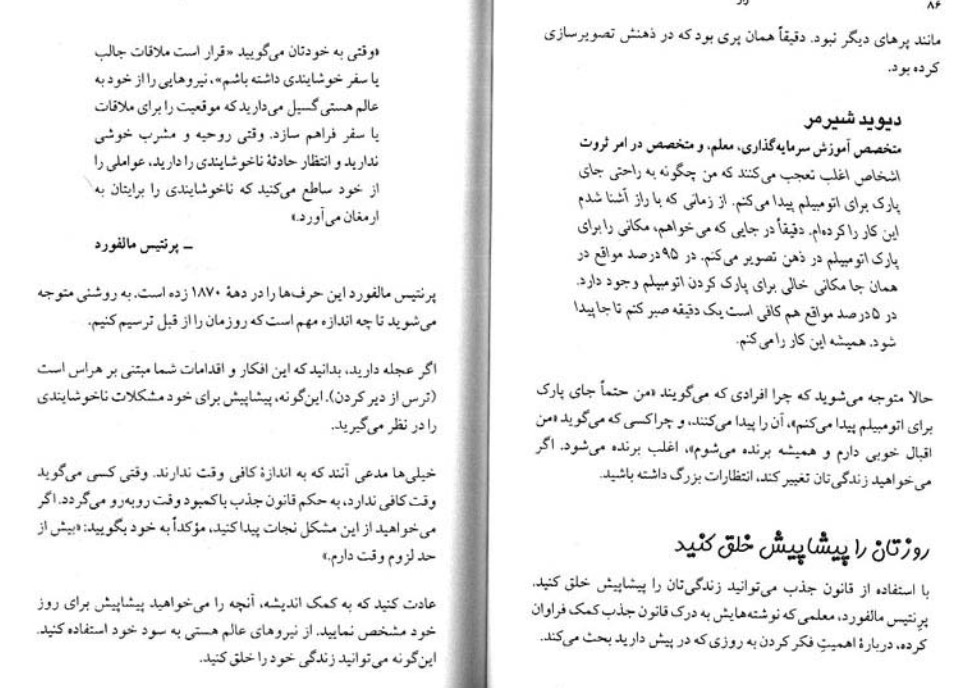 ۸۶
راز
مانند پرهای دیگر نبود. دقیقاً همان پری بود که در ذهنش تصویرسازی
کرده بود.
دیوید شیرمر
متخصص آموزش سرمایه‌گذاری، معلم، و متخصص در امر ثروت
اشخاص اغلب تعجب می‌کنند که من چگونه به راحتی جای
پارک برای اتومبیلم پیدا می‌کنم. از زمانی که با راز آشنا شدم
این کار را کرده‌ام. دقیقاً در جایی که می‌خواهم، مکانی را برای
پارک اتومبیلم در ذهن تصویر می‌کنم. در ۹۵ درصد مواقع در
همان جا مکانی خالی برای پارک کردن اتومبیلم وجود دارد.
در ۵ درصد مواقع هم کافی است یک دقیقه صبر کنم تا جا پیدا
شود. همیشه این کار را می‌کنم.
حالا متوجه می‌شوید که چرا افرادی که می‌گویند «من حتماً جای پارک
برای اتومبیلم پیدا می‌کنم»، آن را پیدا می‌کنند، و چرا کسی که می‌گوید «من
اقبال خوبی دارم و همیشه برنده می‌شوم»، اغلب برنده می‌شود. اگر
می‌خواهید زندگی‌تان تغییر کند، انتظارات بزرگ داشته باشید.
روزتان را پیشاپیش خلق کنید
با استفاده از قانون جذب می‌توانید زندگی‌تان را پیشاپیش خلق کنید.
پرنتیس مالفورد، معلمی که نوشته‌هایش به درک قانون جذب کمک فراوان
کرده، دربارهٔ اهمیتِ فکر کردن به روزی که در پیش دارید بحث می‌کند.
«وقتی به خودتان می‌گویید «قرار است ملاقات جالب
یا سفر خوشایندی داشته باشم»، نیروهایی را از خود به
عالم هستی گسیل می‌دارید که موقعیت را برای ملاقات
یا سفر فراهم سازد. وقتی روحیه و مشرب خوشی
ندارید و انتظار حادثهٔ ناخوشایندی را دارید، عواملی را
از خود ساطع می‌کنید که ناخوشایندی را برایتان به
ارمغان می‌آورد.»
ــ پرنتیس مالفورد
پرنتیس مالفورد این حرف‌ها را در دههٔ ۱۸۷۰ زده است. به روشنی متوجه
می‌شوید تا چه اندازه مهم است که روزمان را از قبل ترسیم کنیم.
اگر عجله دارید، بدانید که این افکار و اقدامات شما مبتنی بر هراس است
(ترس از دیر کردن). این‌گونه، پیشاپیش برای خود مشکلات ناخوشایندی
را در نظر می‌گیرید.
خیلی‌ها مدعی آنند که به اندازهٔ کافی وقت ندارند. وقتی کسی می‌گوید
وقت کافی ندارد، به حکم قانون جذب با کمبود وقت روبه‌رو می‌گردد. اگر
می‌خواهید از این مشکل نجات پیدا کنید، مؤکداً به خود بگویید: «بیش از
حد لزوم وقت دارم.»
عادت کنید که به کمک اندیشه، آنچه را می‌خواهید پیشاپیش برای روز
خود مشخص نمایید. از نیروهای عالم هستی به سود خود استفاده کنید.
این‌گونه می‌توانید زندگی خود را خلق کنید.